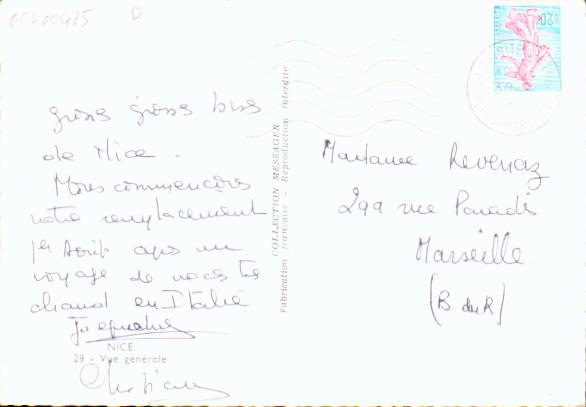 00400425 D
0,20
grosses grosses bises
de Nice.
Nous commençons
notre remplacement
1er Août après un
voyage de noces très
chaud en Italie
Jacqueline
NICE
28 - Vue générale
Christian
COLLECTION MESSAGER
Fabrication française - Reproduction interdite
Madame Revenaz
299 rue Paradis
Marseille
(B du R)